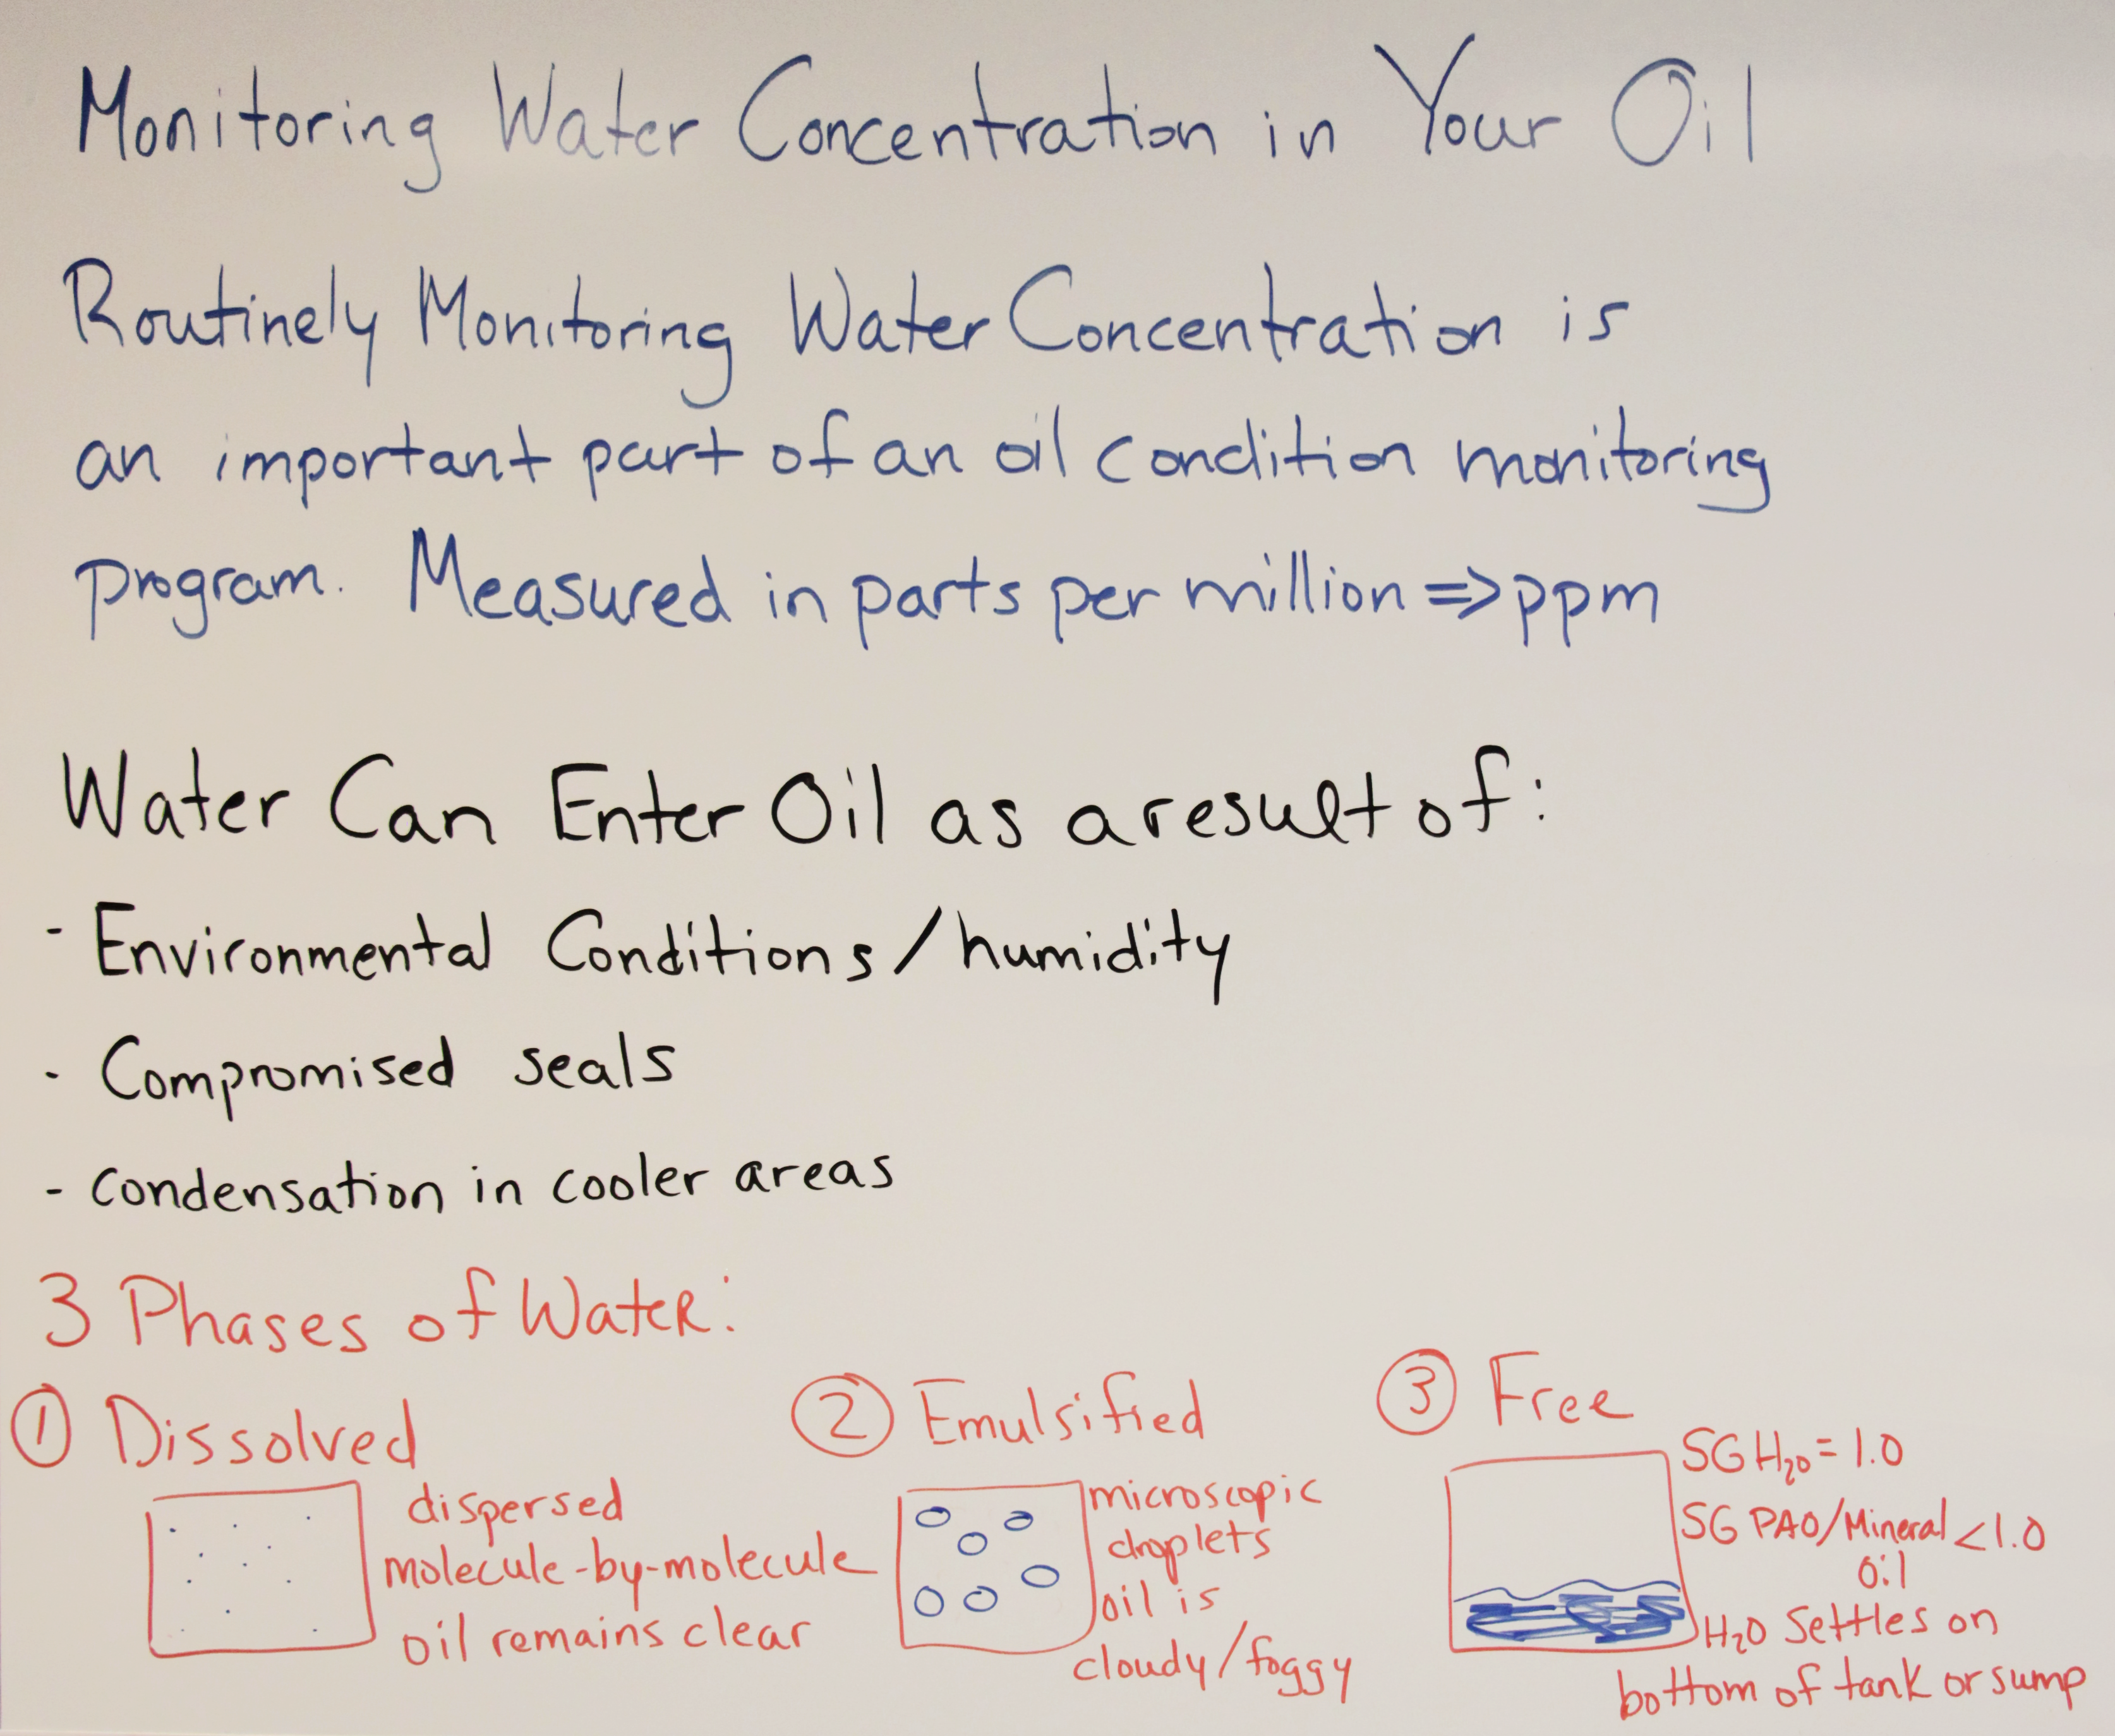 Monitoring Water Concentration in Your Oil
Routinely Monitoring Water Concentration is
an important part of an oil condition monitoring
program. Measured in parts per million => ppm
Water Can Enter Oil as a result of:
- Environmental Conditions/humidity
- Compromised seals
- condensation in cooler areas
3 Phases of Water:
① Dissolved
dispersed
molecule-by-molecule
oil remains clear
② Emulsified
microscopic
droplets
oil is
cloudy/foggy
③ Free
SG H₂O = 1.0
SG PAO/Mineral < 1.0
oil
H₂O Settles on
bottom of tank or sump